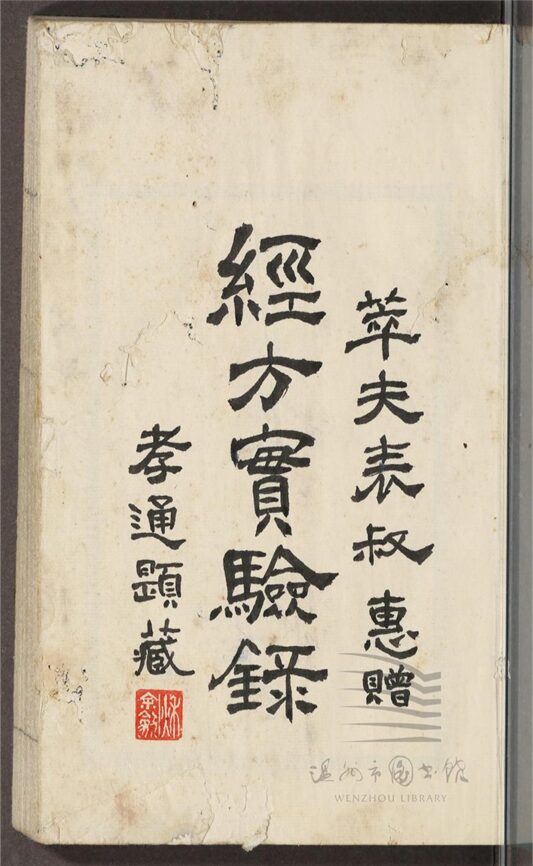 萃夫表叔惠贈
經方實驗錄
孝通題藏
溫州市图书馆
WENZHOU LIBRARY